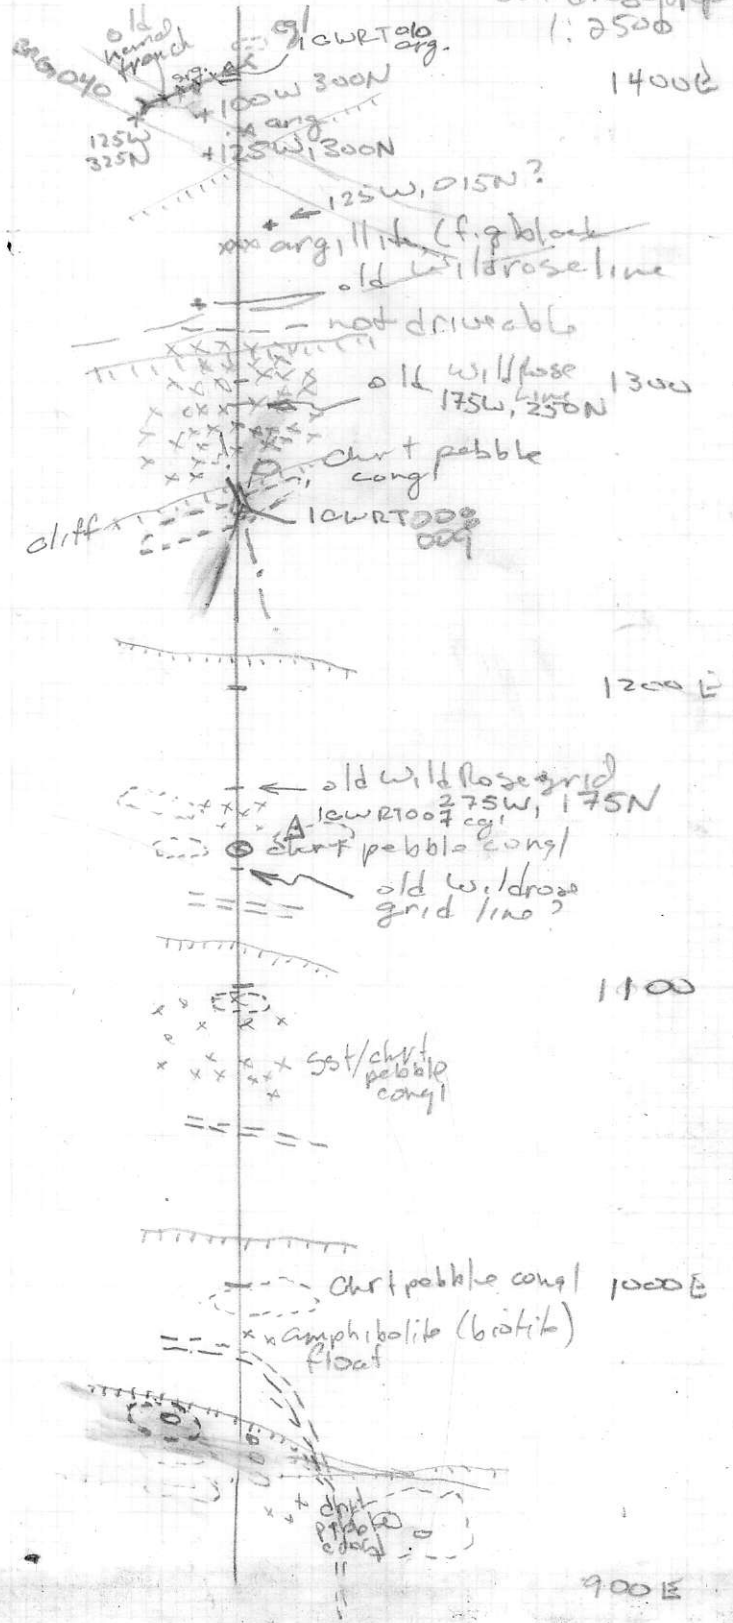 1:2500
old
cgl
1GWRT010
arg.
trench
arg.
BRG 040
1400E
+100W 300N
arg
125W
325N
+125W, 300N
125W, 015N?
argillite (f.g black
old Wildrose line
not driveable
old Wildrose
line
175W, 250N
1300
chrt pebble
congl
cliff
1GWRT008
009
1200 E
old Wild Rose grid
275W, 175N
1GWRT007 cgl
chrt pebble congl
old Wildrose
grid line?
1100
sst/chrt
pebble
congl
chrt pebble congl
1000 E
amphibolite (biotite)
float
chrt
pebble
900 E